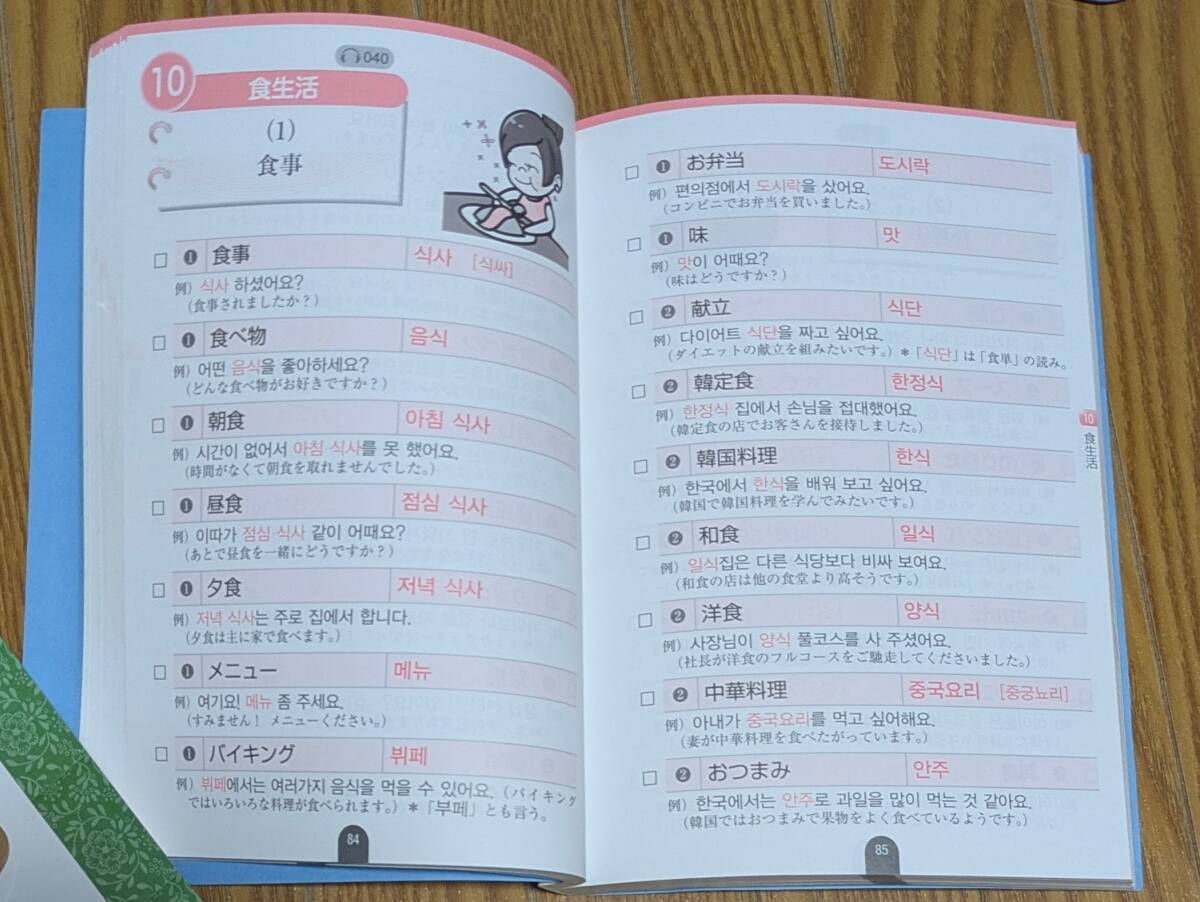 040
10
食生活
(1)
食事
❶ 食事 식사 [식싸]
例) 식사 하셨어요?
(食事されましたか?)
❶ 食べ物 음식
例) 어떤 음식을 좋아하세요?
(どんな食べ物がお好きですか?)
❶ 朝食 아침 식사
例) 시간이 없어서 아침 식사를 못 했어요.
(時間がなくて朝食を取れませんでした。)
❶ 昼食 점심 식사
例) 이따가 점심 식사 같이 어때요?
(あとで昼食を一緒にどうですか?)
❶ 夕食 저녁 식사
例) 저녁 식사는 주로 집에서 합니다.
(夕食は主に家で食べます。)
❶ メニュー 메뉴
例) 여기요! 메뉴 좀 주세요.
(すみません! メニューください。)
❶ バイキング 뷔페
例) 뷔페에서는 여러가지 음식을 먹을 수 있어요. (バイキング
ではいろいろな料理が食べられます。) *「부페」とも言う。
84
❶ お弁当 도시락
例) 편의점에서 도시락을 샀어요.
(コンビニでお弁当を買いました。)
❶ 味 맛
例) 맛이 어때요?
(味はどうですか?)
❷ 献立 식단
例) 다이어트 식단을 짜고 싶어요.
(ダイエットの献立を組みたいです。) *「식단」は「食単」の読み。
❷ 韓定食 한정식
例) 한정식 집에서 손님을 접대했어요.
(韓定食の店でお客さんを接待しました。)
❷ 韓国料理 한식
例) 한국에서 한식을 배워 보고 싶어요.
(韓国で韓国料理を学んでみたいです。)
❷ 和食 일식
例) 일식집은 다른 식당보다 비싸 보여요.
(和食の店は他の食堂より高そうです。)
❷ 洋食 양식
例) 사장님이 양식 풀코스를 사 주셨어요.
(社長が洋食のフルコースをご馳走してくださいました。)
❷ 中華料理 중국요리 [중궁뇨리]
例) 아내가 중국요리를 먹고 싶어해요.
(妻が中華料理を食べたがっています。)
❷ おつまみ 안주
例) 한국에서는 안주로 과일을 많이 먹는 것 같아요.
(韓国ではおつまみで果物をよく食べているようです。)
10
食生活
85